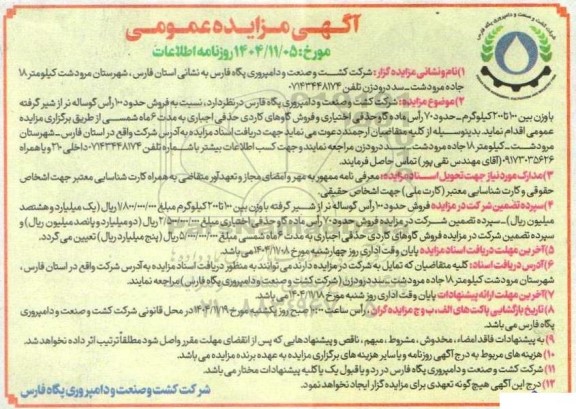 آگهی مزایده عمومی
مورخ: ۱۴۰۴/۱۱/۰۵ روزنامه اطلاعات
۱) نام و نشانی مزایده گزار: شرکت کشت و صنعت و دامپروری پگاه فارس به نشانی استان فارس، شهرستان مرودشت کیلومتر ۱۸
جاده مرودشت - سد درودزن تلفن ۰۷۱۴۳۴۴۸۱۷۴
۲) موضوع مزایده: شرکت کشت وصنعت و دامپروری پگاه فارس در نظر دارد، نسبت به فروش حدود ۱۰۰ رأس گوساله نر از شیر گرفته
با وزن بین ۱۰۰ تا ۲۰۰ کیلوگرم - حدود ۷۰ رأس ماده گاو حذفی اختیاری و فروش گاوهای کاردی حذفی اجباری به مدت ۶ ماه شمسی از طریق برگزاری مزایده
عمومی اقدام نماید. بدینوسیله از کلیه متقاضیان ارجمند دعوت می نماید جهت دریافت اسناد مزایده به آدرس شرکت واقع در استان فارس - شهرستان
مرودشت - کیلومتر ۱۸ جاده مرودشت - سد درودزن مراجعه نمایند و جهت کسب اطلاعات بیشتر با شماره تلفن ۰۷۱۴۳۴۴۸۱۷۴ داخلی ۲۱۰ و یا همراه
۰۹۱۷۳۰۳۵۶۲۶ (آقای مهندس نقی پور) تماس حاصل فرمایند.
۳) مدارک مورد نیاز جهت تحویل اسناد مزایده: معرفی نامه ممهور به مهر و امضای مجاز و تعهدآور متقاضی به همراه کارت شناسایی معتبر جهت اشخاص
حقوقی و کارت شناسایی معتبر (کارت ملی) جهت اشخاص حقیقی
۴) سپرده تضمین شرکت در مزایده فروش حدود ۱۰۰ رأس گوساله نر از شیر گرفته با وزن بین ۱۰۰ تا ۲۰۰ کیلوگرم مبلغ ۱/۸۰۰/۰۰۰/۰۰۰ ریال (یک میلیارد و هشتصد
میلیون ریال) - سپرده تضمین شرکت در مزایده فروش حدود ۷۰ رأس ماده گاو حذفی اختیاری مبلغ ۲/۵۰۰/۰۰۰/۰۰۰ ریال (دو میلیارد و پانصد میلیون ریال) و
سپرده تضمین شرکت در مزایده فروش گاوهای کاردی حذفی اجباری به مدت ۶ ماه شمسی مبلغ ۵/۰۰۰/۰۰۰/۰۰۰ ریال (پنج میلیارد ریال) تعیین می گردد.
۵) آخرین مهلت دریافت اسناد مزایده پایان وقت اداری روز چهارشنبه مورخ ۱۴۰۴/۱۱/۰۸ می باشد.
۶) آدرس دریافت اسناد: کلیه متقاضیان که تمایل به شرکت در مزایده دارند می توانند به منظور دریافت اسناد مزایده به آدرس شرکت واقع در استان فارس،
شهرستان مرودشت کیلومتر ۱۸ جاده مرودشت سد درودزن (شرکت کشت و صنعت و دامپروری پگاه فارس) مراجعه نمایند.
۷) آخرین مهلت ارائه پیشنهادات پایان وقت اداری روز شنبه مورخ ۱۴۰۴/۱۱/۱۸ می باشد.
۸) تاریخ بازگشایی پاکت های الف، ب و ج مزایده گران، رأس ساعت ۱۰:۰۰ صبح روز یکشنبه مورخ ۱۴۰۴/۱۱/۱۹ در محل قانونی شرکت کشت و صنعت و دامپروری
پگاه فارس می باشد.
۹) به پیشنهادات فاقد امضاء، مخدوش، مشروط، مبهم، ناقص و پیشنهادهایی که پس از انقضای مهلت مقرر واصل شود مطلقاً ترتیب اثر داده نخواهد شد.
۱۰) هزینه های مربوط به درج آگهی روزنامه و یا سایر هزینه های برگزاری مزایده به عهده برنده مزایده می باشد.
۱۱) شرکت کشت و صنعت و دامپروری پگاه فارس در رد و یا قبول یک یا کلیه پیشنهادات مختار می باشد.
۱۲) درج این آگهی هیچ گونه تعهدی برای مزایده گزار ایجاد نخواهد نمود.
شرکت کشت و صنعت و دامپروری پگاه فارس